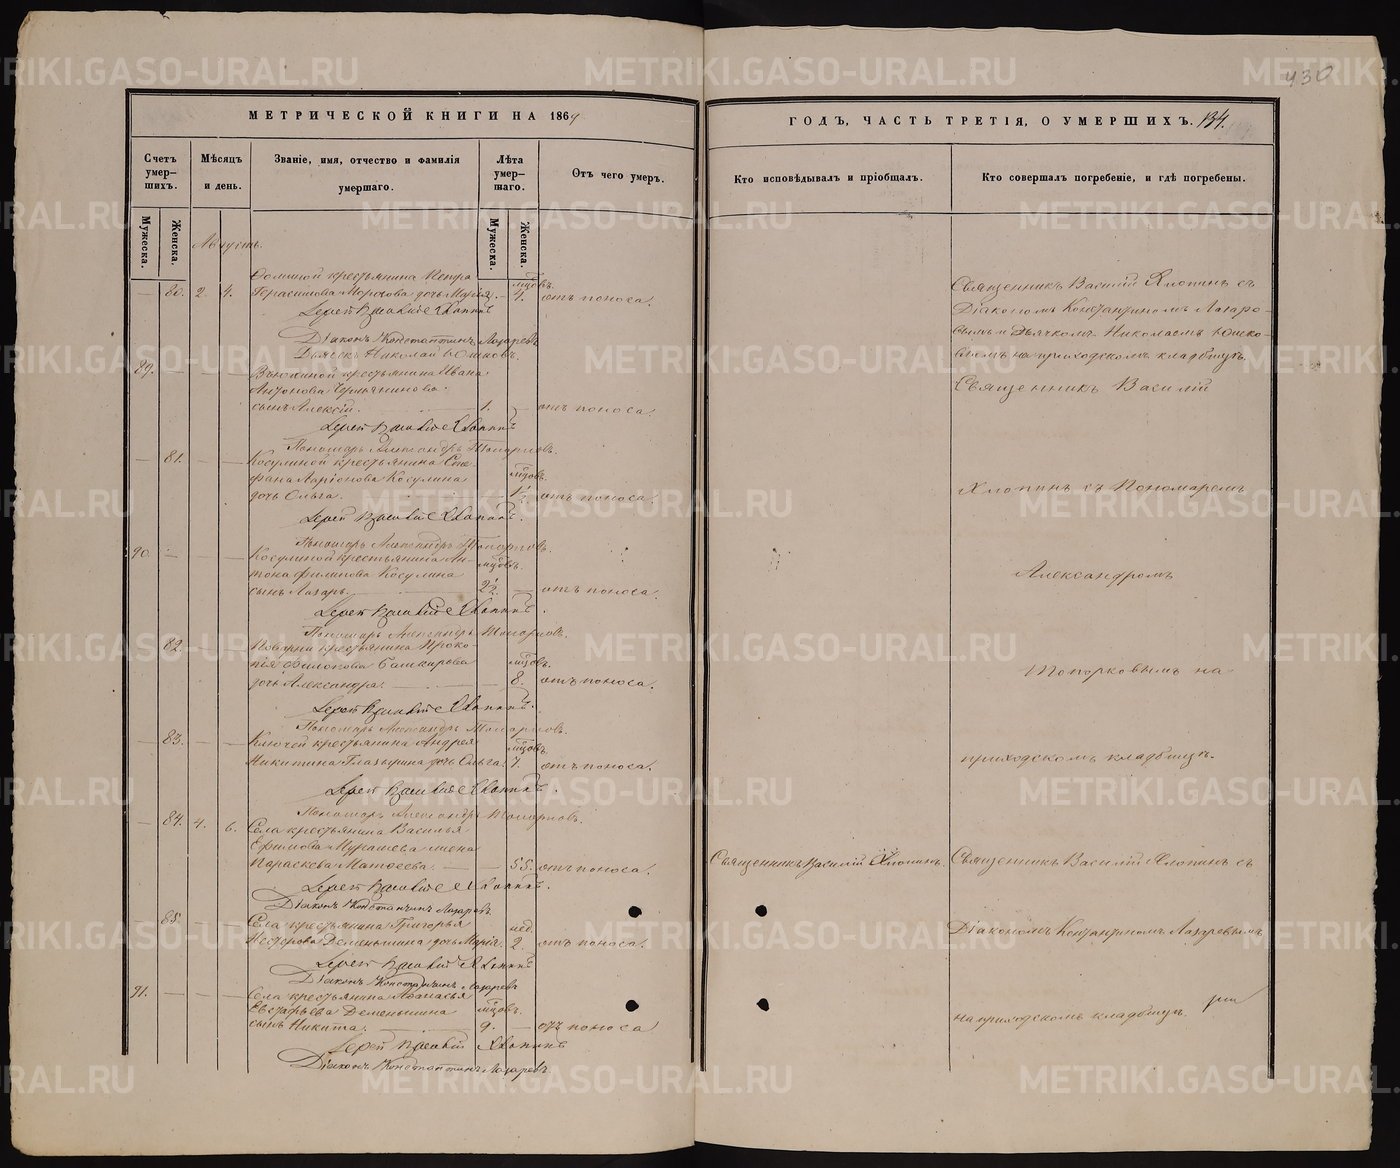 430
МЕТРИЧЕСКОЙ КНИГИ НА 1869
ГОДЪ, ЧАСТЬ ТРЕТІЯ, О УМЕРШИХЪ. 134.
Счетъ умер-шихъ.
Мѣсяцъ и день.
Званіе, имя, отчество и фамилія умершаго.
Лѣта умер-шаго.
Отъ чего умеръ.
Кто исповѣдывалъ и пріобщалъ.
Кто совершалъ погребеніе, и гдѣ погребены.
Мужеска.
Женска.
Мужеска.
Женска.
Августъ.
крестьянина Петра
мцовъ.
— 80. 2 4. Герасимова Морозова дочь Марія. — 7. отъ поноса.
Іерей Василій Хлопинъ
Діаконъ Константинъ Лазаревъ
Дьячекъ Николай Юшковъ.
89. — — — крестьянина Ивана
Антонова
сынъ Алексій. 1. — отъ поноса.
Іерей Василій Хлопинъ
Пономарь Александръ Топорковъ.
— 81. — — Косулиной крестьянина Сте-
фана Ларіонова Косулина
мцовъ.
дочь Ольга. — 1½ отъ поноса.
Іерей Василій Хлопинъ.
Пономарь Александръ Топорковъ.
90. — — — Косулиной крестьянина Ан-
мцовъ.
тона Филипова Косулина
сынъ Лазарь. 2½. — отъ поноса.
Іерей Василій Хлопинъ.
Пономарь Александръ Топорковъ.
— 82. — — крестьянина Проко-
пія Филипова Башкирова
мцовъ.
дочь Александра. — 8. отъ поноса.
Іерей Василій Хлопинъ.
Пономарь Александръ Топорковъ.
— 83. — — Ключей крестьянина Андрея
мцовъ.
Никитина Глазырина дочь Ольга. 7. отъ поноса.
Іерей Василій Хлопинъ.
Пономарь Александръ Топорковъ.
— 84. 4. 6. Села крестьянина Василья
Ефимова
Параскева Матѳеева. — 55. отъ поноса.
Іерей Василій Хлопинъ.
Діаконъ Константинъ Лазаревъ
— 85. — — Села крестьянина Григорья
нед.
Несторова Деменьшина дочь Марія. 2. отъ поноса.
Іерей Василій Хлопинъ
Діаконъ Константинъ Лазаревъ
91. — — — Села крестьянина Аѳанасья
Евстафьева Деменьшина
мцовъ.
сынъ Никита. 9. — отъ поноса
Іерей Василій Хлопинъ
Діаконъ Константинъ Лазаревъ.
Священникъ Василій Хлопинъ.
Священникъ Василій Хлопинъ съ
Діакономъ Константиномъ Лазаре-
вымъ и Дьячкомъ Николаемъ Юшко-
вымъ на приходскомъ кладбищѣ.
Священникъ Василій
Хлопинъ съ Пономаремъ
Александромъ
Топорковымъ на
приходскомъ кладбищѣ.
Священникъ Василій Хлопинъ съ
Діакономъ Константиномъ Лазаревымъ
на приходскомъ кладбищѣ.
METRIKI.GASO-URAL.RU